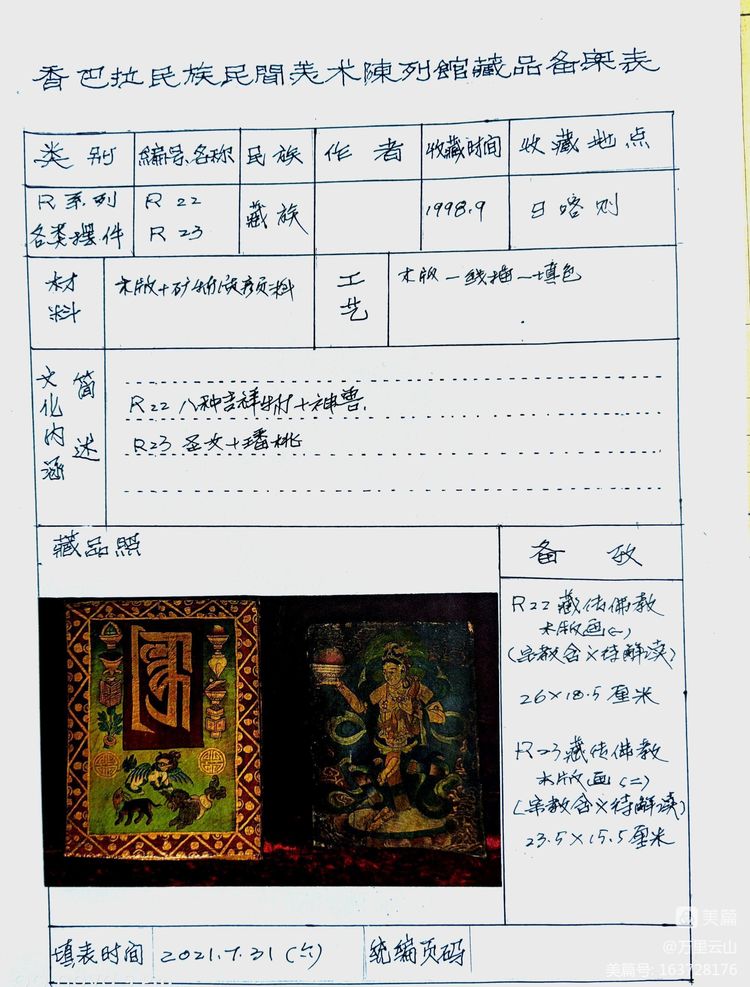 香巴拉民族民間美术陳列館藏品备案表
类别 编号名称 民族 作者 收藏时间 收藏地点
R系列 各类摆件
R 22
R 23
藏族
1998.9
日喀则
材料
木版+矿物质颜料
工艺
木版—线描—填色
文化内涵 简述
R22 八种吉祥物+神兽
R23 圣女+蟠桃
藏品照
备考
R22 藏传佛教
木版画(一)
(宗教含义待解读)
26×18.5厘米
R23 藏传佛教
木版画(二)
(宗教含义待解读)
23.5×15.5厘米
填表时间 2021.7.31(六) 统编页码
美篇
@万里云山
美篇号: 163728176